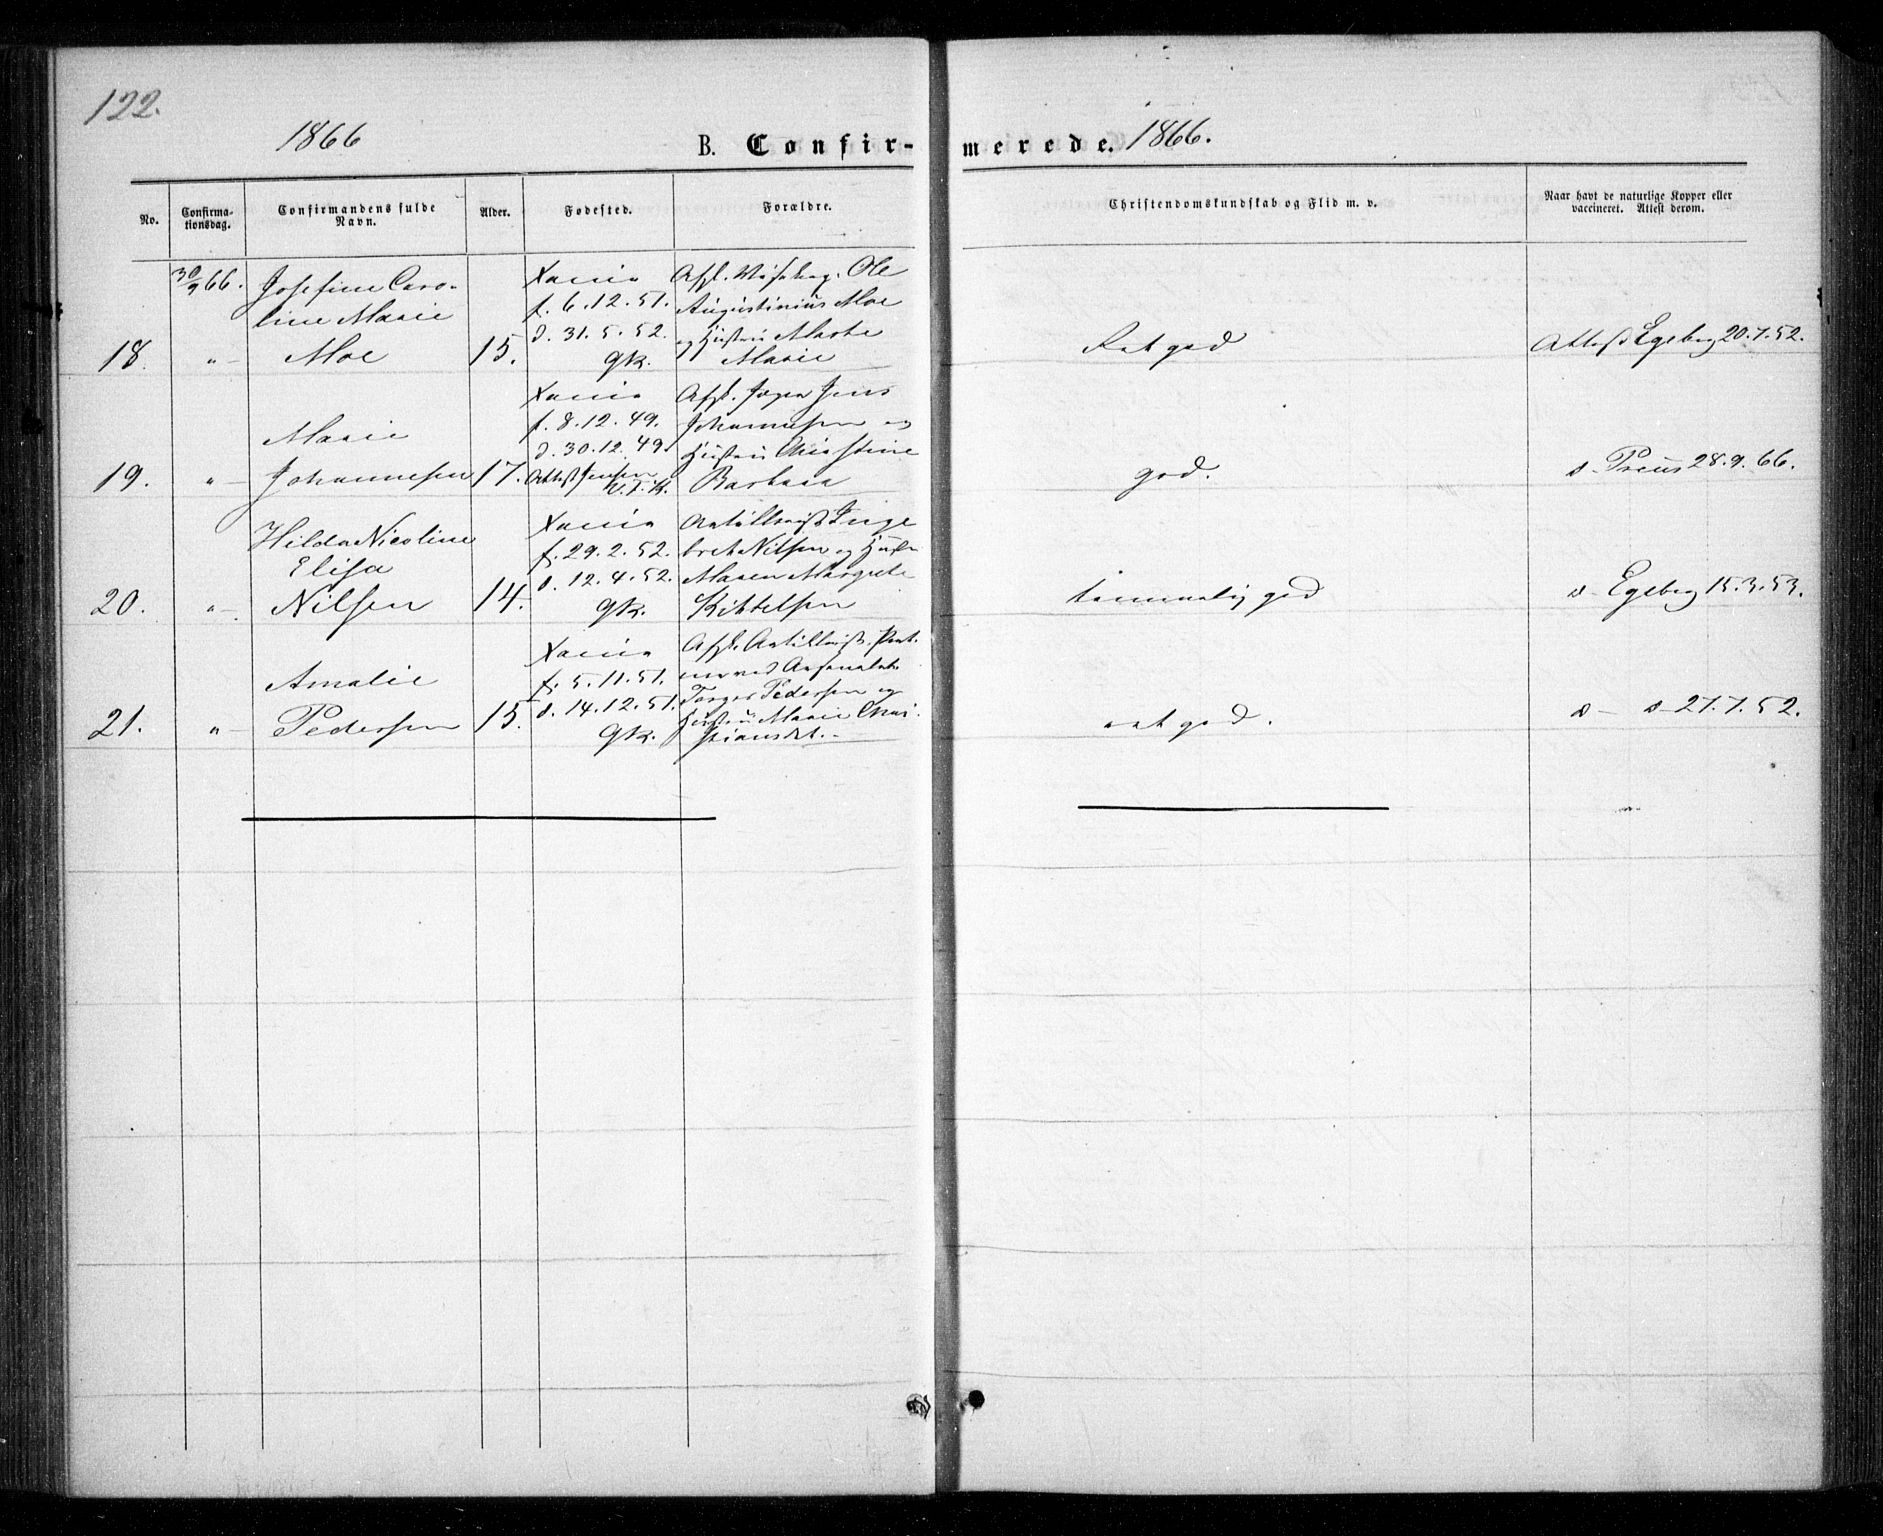 122.
1866
B. Confir-
merede. 1866.
No.
Confirma-
tionsdag.
Confirmandens fulde
Navn.
Alder.
Fødested.
Forældre.
Christendomskundskab og Flid m. v.
Naar havt de naturlige Kopper eller
vaccineret. Attest derom.
30/9 66.
Josefine Caro-
line Marie
18. " Moe 15.
Xania
f. 6.12.51.
d. 31.5.52.
gk.
Afsk. Ole
Augustinius Moe
og Hustru Marthe
Marie
Ret god
Attest Egeberg 20.7.52.
Marie
19. " Johannesen 17.
Xania
f. 8.12.49.
d. 30.12.49.
Attest Jensen
V.F.K.
Afsk. Jens
Johannesen og
Hustru Christine
Barbara
god.
d- Preus 28.9.66.
Hilda Nicoline
Elisa
20. " Nilsen 14.
Xania
f. 29.2.52.
d. 12.4.52.
gk.
Artillerist Inge
bret Nilsen og Hustru
Maren Margrete
Kittelsen
temmelig god
d- Egeberg 15.3.53.
Amalie
21. " Pedersen 15.
Xania
f. 5.11.51.
d. 14.12.51.
gk.
Afsk. Artillerist. Port-
ner ved Arsenalet
Torger Pedersen og
Hustru Marie Chri-
stiansdt.
ret god.
d- d- 27.7.52.